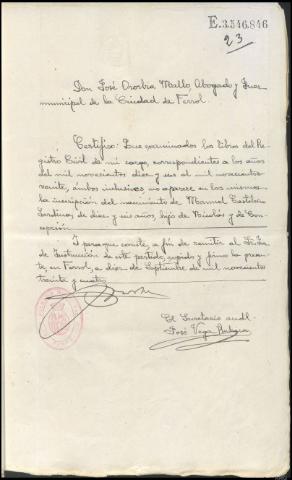 E.3.546.846
23
Don José Orozbia Mallo, Abogado y Juez
municipal de la Ciudad de Ferrol.
Certifico: Que examinados los libros del Re-
gistro Civil de mi cargo, correspondientes a los años
del mil novecientos diez y seis al mil novecientos
veinte, ámbos inclusives no aparece en los mismos
la inscripción del nacimiento de Manuel Castelos
de diez y seis años, hijo de Nicolás y de Con-
cepción
Y para que conste, a fin de remitir al Sr. Juez
de Instrucción de este partido, expido y firmo la presen-
te, en Ferrol, a diez de Septiembre de mil novecientos
treinta y cuatro
El Secretario
José Vega